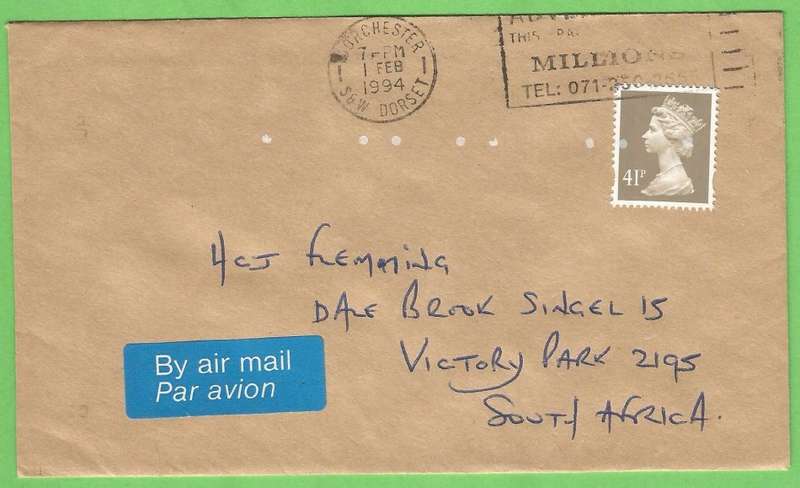 DORCHESTER
7-PM
1 FEB
1994
S&W DORSET
THIS
MILLIONS
TEL: 071-250
41P
HCJ Flemming
Dale Brook Singel 15
Victory Park 2195
South Africa.
By air mail
Par avion